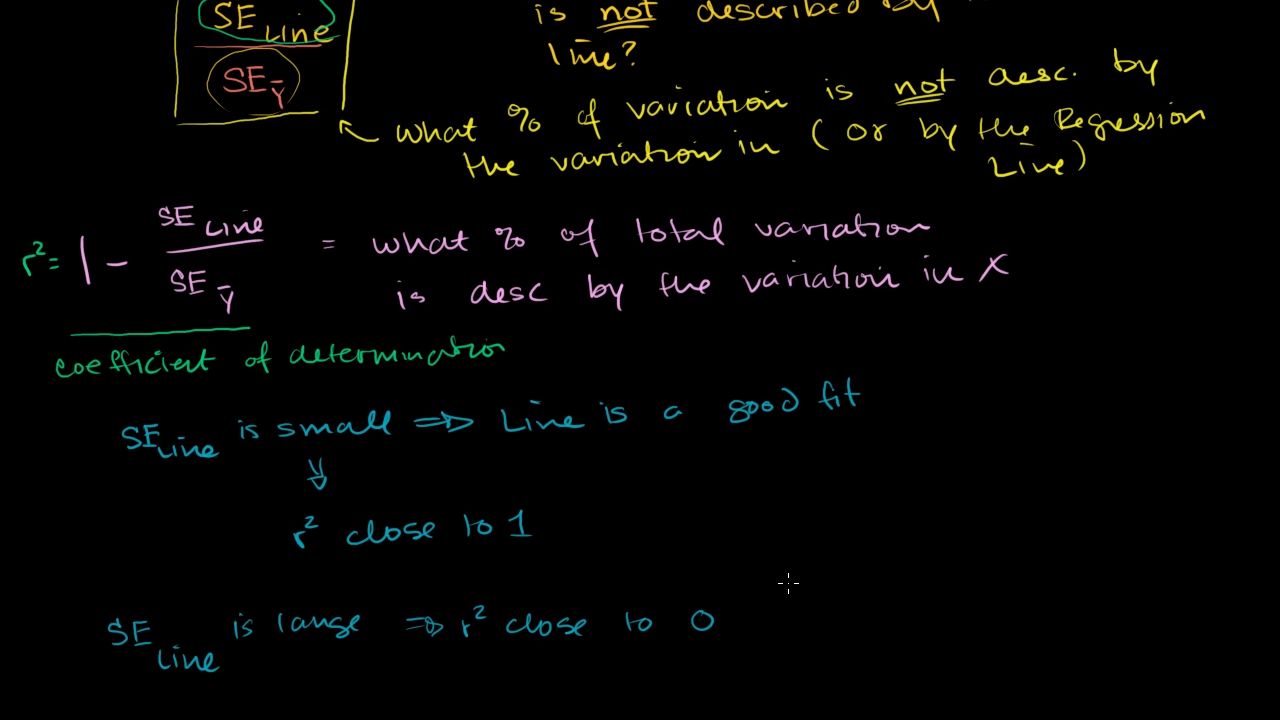 SE Line
SE ȳ
is not described by
line?
what % of variation is not desc. by
the variation in (or by the Regression
Line)
r² = 1 - SE Line / SE ȳ = what % of total variation
is desc by the variation in x
coefficient of determination
SE Line is small ⇒ Line is a good fit
⇓
r² close to 1
SE Line is large ⇒ r² close to 0